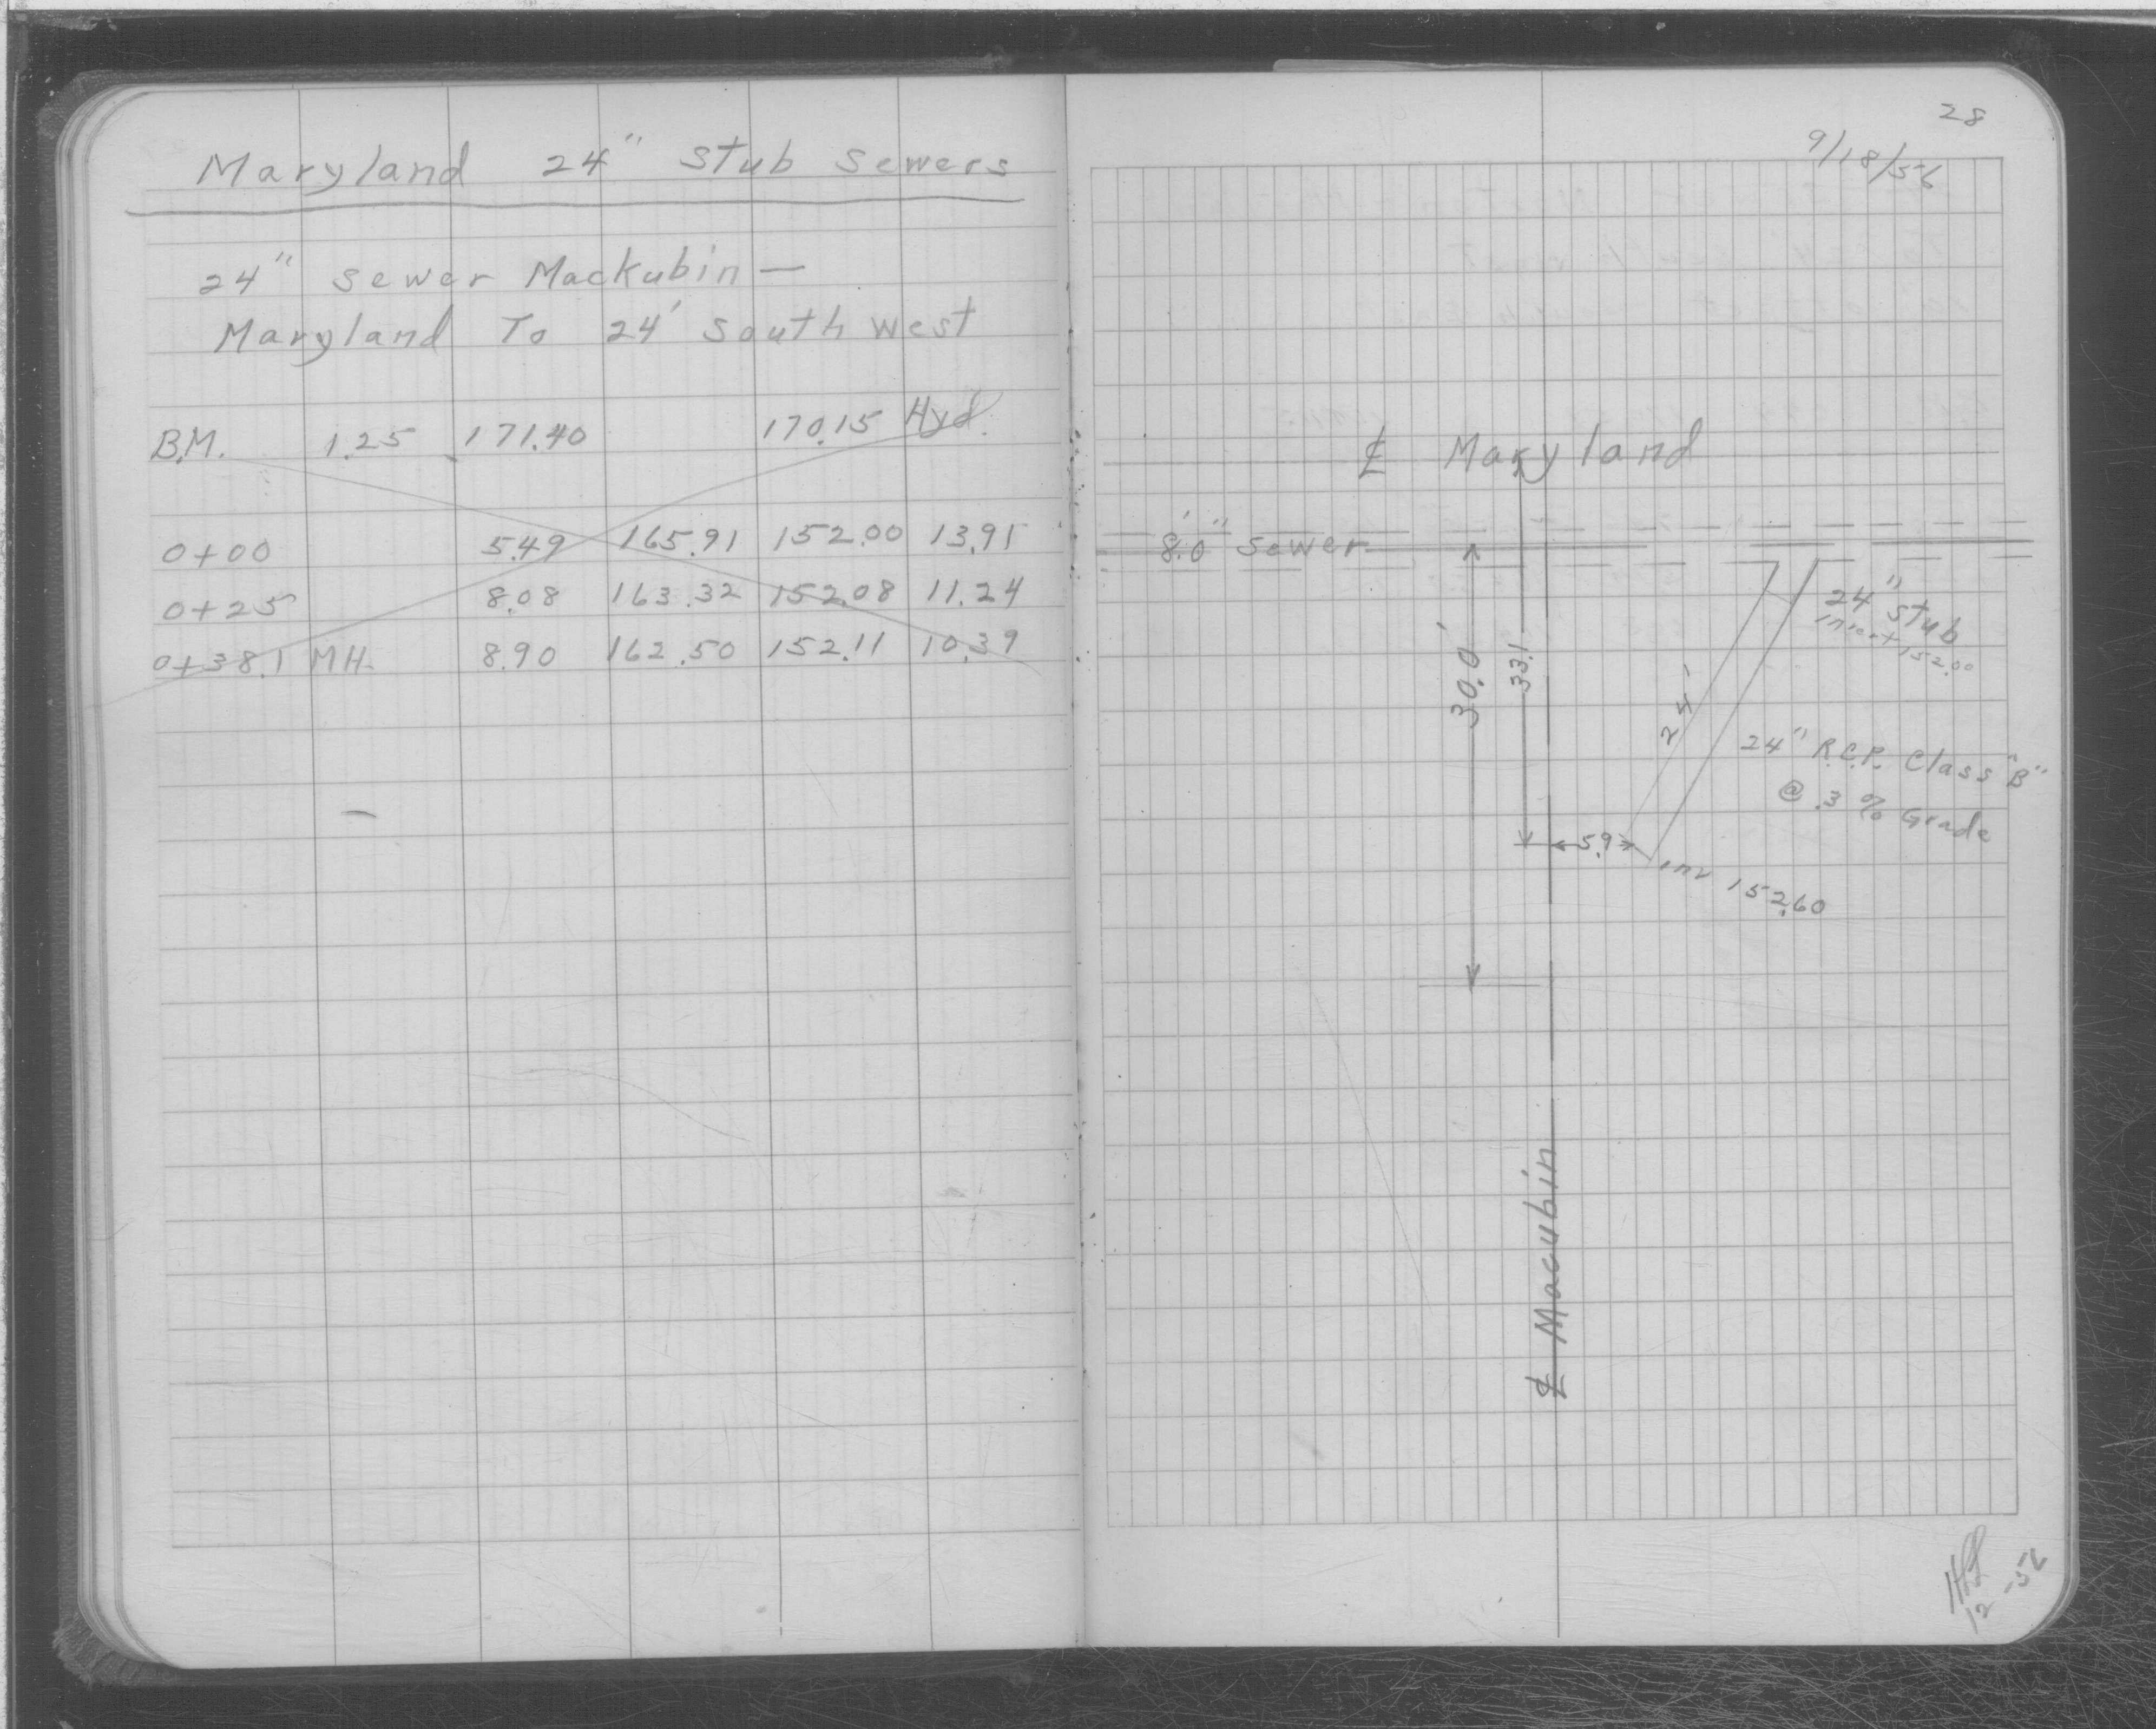 Maryland 24" Stub Sewers
24" Sewer Mackubin —
Maryland To 24' South West
B.M. 1.25 171.40 170.15 Hyd.
0+00 5.49 165.91 152.00 13.91
0+25 8.08 163.32 152.08 11.24
0+38.1 M.H. 8.90 162.50 152.11 10.39
28
9/18/56
℄ Maryland
8'.0" Sewer
24" Stub
Invert 152.00
30.0'
33.1
24'
24" R.C.P. Class "B"
@ .3 % Grade
5.9
Inv 152.60
℄ Macubin
12 -56